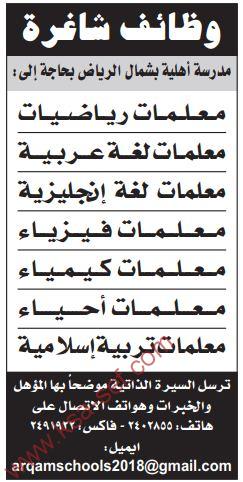 وظائف شاغرة
مدرسة أهلية بشمال الرياض بحاجة إلى:
معلمات رياضيات
معلمات لغة عربية
معلمات لغة إنجليزية
معلمات فيزياء
معلمات كيمياء
معلمات أحياء
معلمات تربية إسلامية
ترسل السيرة الذاتية موضحاً بها المؤهل
والخبرات وهواتف الاتصال على
هاتف: ٢٤٠٢٨٥٥ - فاكس: ٢٤٩١٩٢٢
ايميل:
arqamschools2018@gmail.com
www.ksa-saf.com